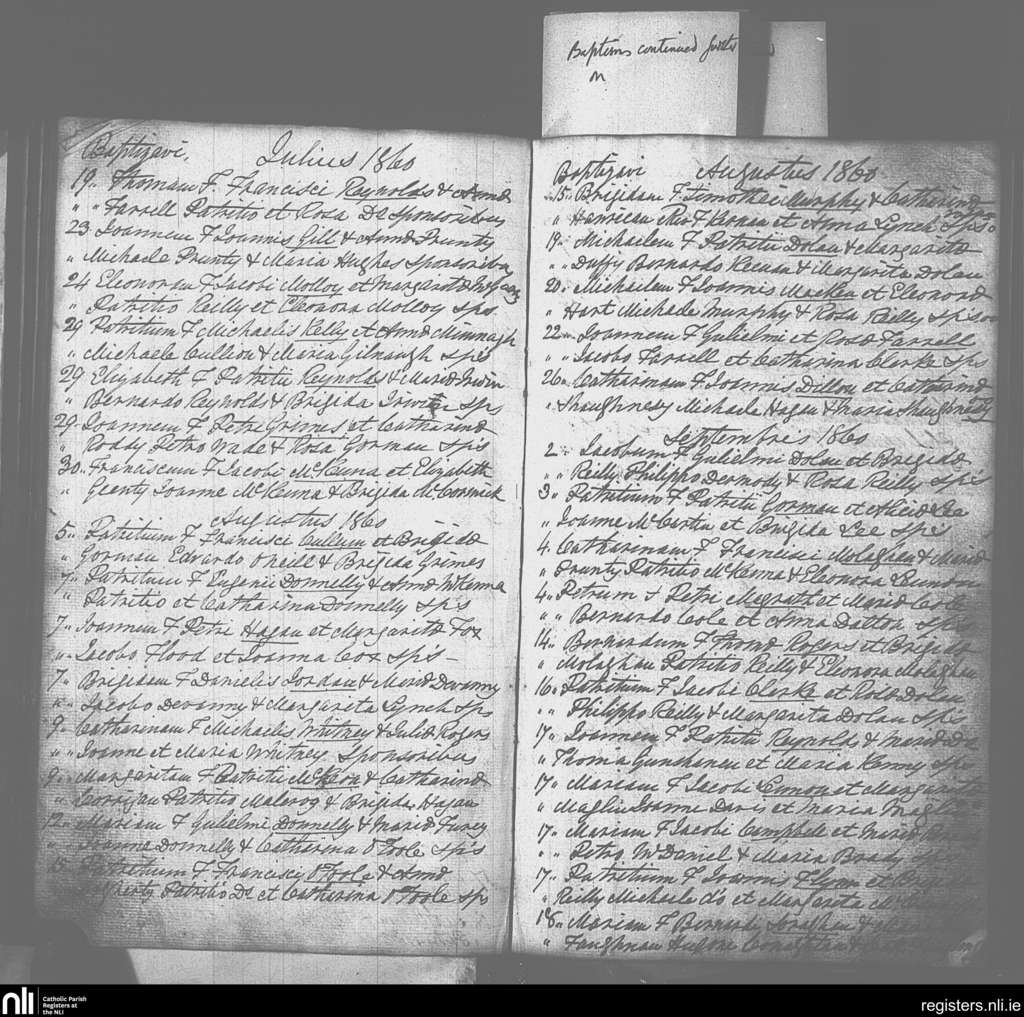 Baptisms continued further
on
Baptizavi, Iulius 1860
19 .. Thomam F. Francisci Reynolds & Anna
" " Farrell Patritio et Rosa Do Sponsoribus
23 Ioannem F Ioannis Gill & Anna Prunty
" Michaele Prunty & Maria Hughes Sponsoribus
24 Eleonoram F Iacobi Molloy et Margarita
" Patritio Reilly et Eleonora Molloy Sps
29 Patritium F Michaelis Kelly et Anna Mimnagh
" Michaele Cullion & Maria Gilnaugh Sps
29 Elizabeth F Patritii Reynolds & Maria Irwin
" Bernardo Reynolds & Brigida Irwin Sps
29 Ioannem F Petri Grimes et Catharina
" Roddy Petro Wade & Rosa Gorman Sps
30. Franciscum F Iacobi McKenna et Elizabeth
" Gienty Ioanne McKenna & Brigida McCormick
Augustus 1860
5 .. Patritium F Francisci Cullum et Brigida
" Gorman Edvardo Oneill & Brigida Grimes
7 .. Patritium F Eugenii Donnelly & Anna McKenna
" Patritio et Catharina Donnelly Sps
7 .. Ioannem F Petri Hagan et Margarita Fox
" Iacobo Flood et Ioanna Cox Sps
7 .. Brigidam F Danielis Iordan & Maria Devanny
" Iacobo Devanny & Margarita Lynch Sps
9 .. Catharinam F Michaelis Whitney & Iulia Rogers
" Ioanne et Maria Whitney Sponsoribus
9 .. Margaritam F Patritii McKeon & Catharina
" Corrigan Patritio Malerog & Brigida Hagan
12 .. Mariam F Gulielmi Donnelly & Maria Furey
" Ioanne Donnelly & Catharina O'Toole Sps
Patritium F. Francisci O'Toole & Anna
Patritio Do et Catharina O'Toole Sps
Baptizavi Augustus 1860
15 .. Brigidam F Timothei Murphy & Catharina
" Kernan et Anna Lynch Sps
19 .. Michaelem F Patritii Dolan & Margarita
" Duffy Bernardo Keenan & Margarita Dolan
20 .. Michaelem F Ioannis Macken et Eleonora
" Hart Michaele Murphy & Rosa Reilly
22 .. Ioannem F Gulielmi et Rosa Farrell
" " Iacobo Farrell et Catharina Clerke Sps
26 .. Catharinam F Ioannis Dillon et Catharina
" Shaughnesy Michaele Hagan & Maria Shaughnesy
Septembris 1860
2 .. Iacobum F Gulielmi Dolan et Brigida
" Reilly Philippo Dermody & Rosa Reilly Sps
3 .. Patritium F Patritii Gorman et Alicia Lee
" Ioanne McCartin et Brigida Lee Sps
4 .. Catharinam F Francisci Moleghan & Maria
" Prunty Patritio McKenna & Eleonora
4 .. Petrum F Petri Megrath et Maria Cole
" " Bernardo Cole et Anna Dalton Sps
14 .. Bernardum F Thoma Rogers et Brigida
" Molaghan Patritio Reilly & Eleonora Molaghan
16 .. Patritium F Iacobi Clerke et Rosa Dolan
" " Philippo Reilly & Margareta Dolan Sps
17 .. Ioannem F Patritii Reynolds & Maria Do
" Thoma Gunshanen et Maria Kenny Sps
17 .. Mariam F Iacobi Lennon et Margarita
" Maglin Ioanne Davis et Maria
17 .. Mariam F Iacobi Campbell et Maria
" " Petro McDaniel & Maria Brady
17 .. Patritium F Ioannis Flynn et
" Reilly Michaele do et Margarita
18 .. Mariam F Bernardi Soraghan &
" Faughnan
nli Catholic Parish
Registers at
the NLI
registers.nli.ie